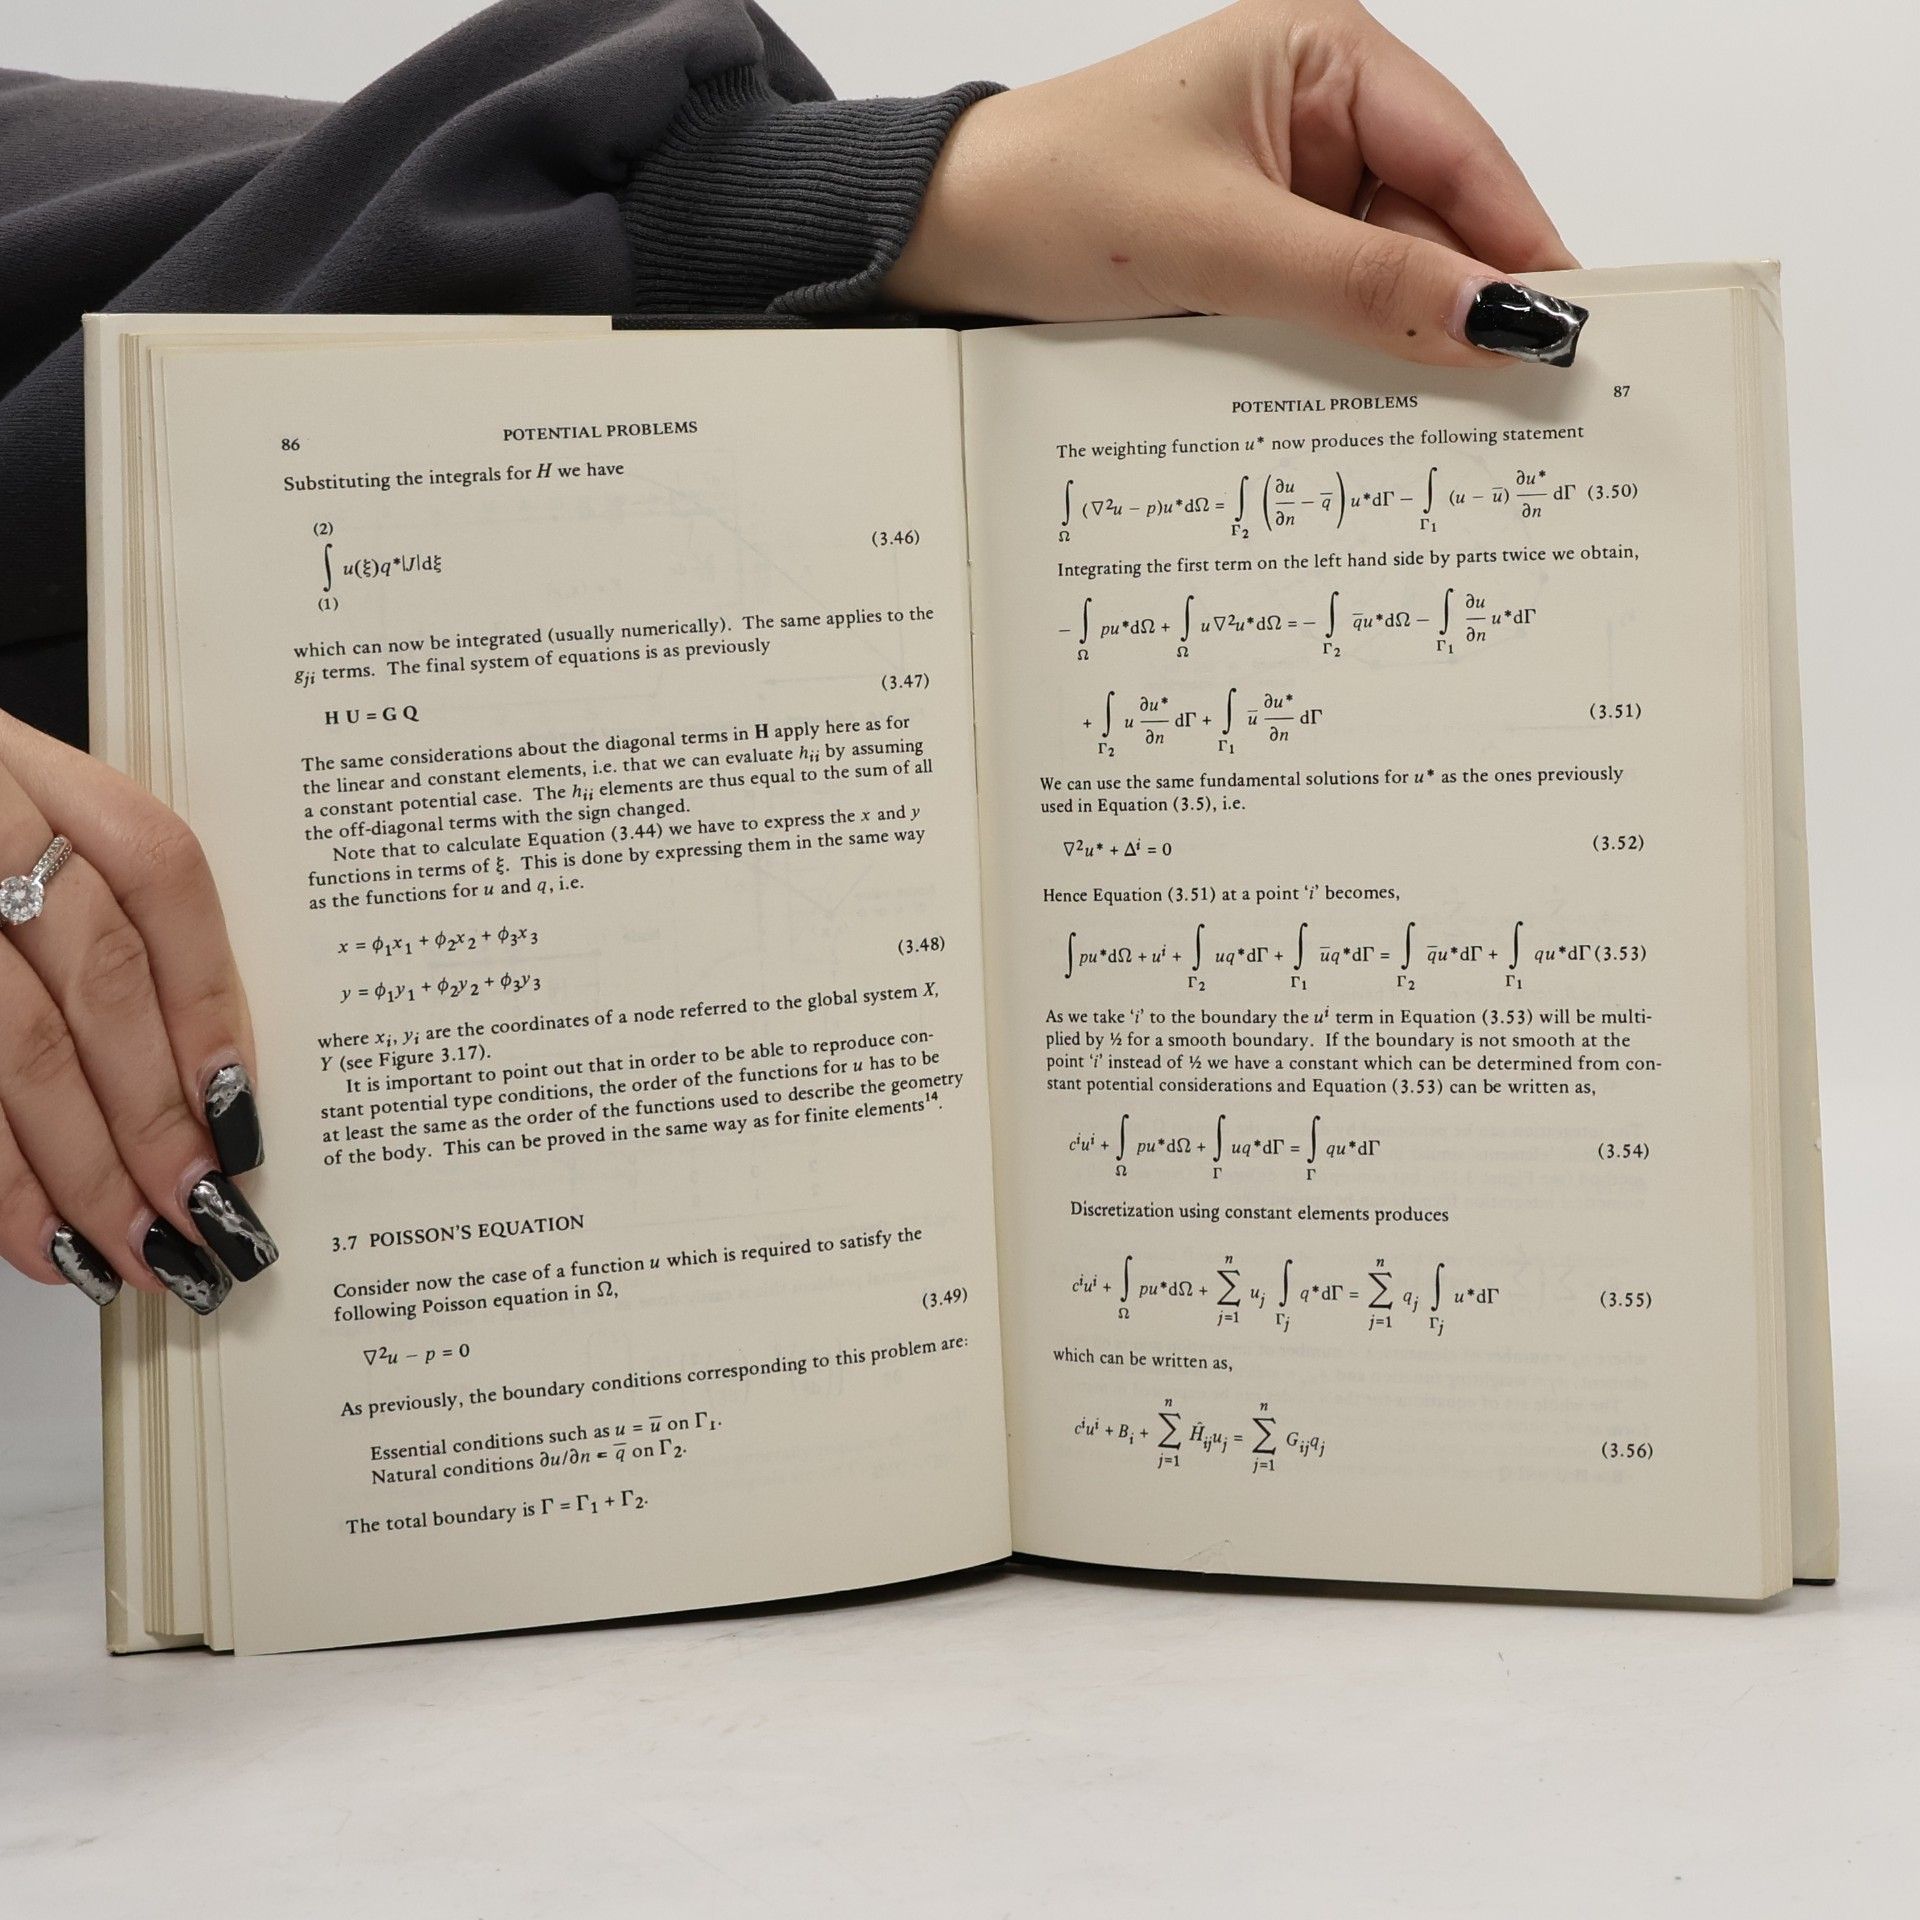 86
POTENTIAL PROBLEMS
Substituting the integrals for H we have
(2)
∫ u(ξ)q*|J|dξ (3.46)
(1)
which can now be integrated (usually numerically). The same applies to the
g_ji terms. The final system of equations is as previously
H U = G Q (3.47)
The same considerations about the diagonal terms in H apply here as for
the linear and constant elements, i.e. that we can evaluate h_ii by assuming
a constant potential case. The h_ii elements are thus equal to the sum of all
the off-diagonal terms with the sign changed.
Note that to calculate Equation (3.44) we have to express the x and y
functions in terms of ξ. This is done by expressing them in the same way
as the functions for u and q, i.e.
x = ϕ₁x₁ + ϕ₂x₂ + ϕ₃x₃
(3.48)
y = ϕ₁y₁ + ϕ₂y₂ + ϕ₃y₃
where x_i, y_i are the coordinates of a node referred to the global system X,
Y (see Figure 3.17).
It is important to point out that in order to be able to reproduce con-
stant potential type conditions, the order of the functions for u has to be
at least the same as the order of the functions used to describe the geometry
of the body. This can be proved in the same way as for finite elements¹⁴.
3.7 POISSON'S EQUATION
Consider now the case of a function u which is required to satisfy the
following Poisson equation in Ω,
∇²u − p = 0 (3.49)
As previously, the boundary conditions corresponding to this problem are:
Essential conditions such as u = ū on Γ₁.
Natural conditions ∂u/∂n = q̄ on Γ₂.
The total boundary is Γ = Γ₁ + Γ₂.
87
POTENTIAL PROBLEMS
The weighting function u* now produces the following statement
∫_Ω (∇²u − p)u*dΩ = ∫_Γ₂ (∂u/∂n − q̄) u*dΓ − ∫_Γ₁ (u − ū) ∂u*/∂n dΓ (3.50)
Integrating the first term on the left hand side by parts twice we obtain,
− ∫_Ω pu*dΩ + ∫_Ω u∇²u*dΩ = − ∫_Γ₂ q̄u*dΩ − ∫_Γ₁ ∂u/∂n u*dΓ
+ ∫_Γ₂ u ∂u*/∂n dΓ + ∫_Γ₁ ū ∂u*/∂n dΓ (3.51)
We can use the same fundamental solutions for u* as the ones previously
used in Equation (3.5), i.e.
∇²u* + Δⁱ = 0 (3.52)
Hence Equation (3.51) at a point ‘i’ becomes,
∫pu*dΩ + uⁱ + ∫_Γ₂ uq*dΓ + ∫_Γ₁ ūq*dΓ = ∫_Γ₂ q̄u*dΓ + ∫_Γ₁ qu*dΓ (3.53)
As we take ‘i’ to the boundary the uⁱ term in Equation (3.53) will be multi-
plied by ½ for a smooth boundary. If the boundary is not smooth at the
point ‘i’ instead of ½ we have a constant which can be determined from con-
stant potential considerations and Equation (3.53) can be written as,
cⁱuⁱ + ∫_Ω pu*dΩ + ∫_Γ uq*dΓ = ∫_Γ qu*dΓ (3.54)
Discretization using constant elements produces
cⁱuⁱ + ∫_Ω pu*dΩ + Σ_{j=1}^n u_j ∫_Γj q*dΓ = Σ_{j=1}^n q_j ∫_Γj u*dΓ (3.55)
which can be written as,
cⁱuⁱ + B_i + Σ_{j=1}^n Ĥ_ij u_j = Σ_{j=1}^n G_ij q_j (3.56)